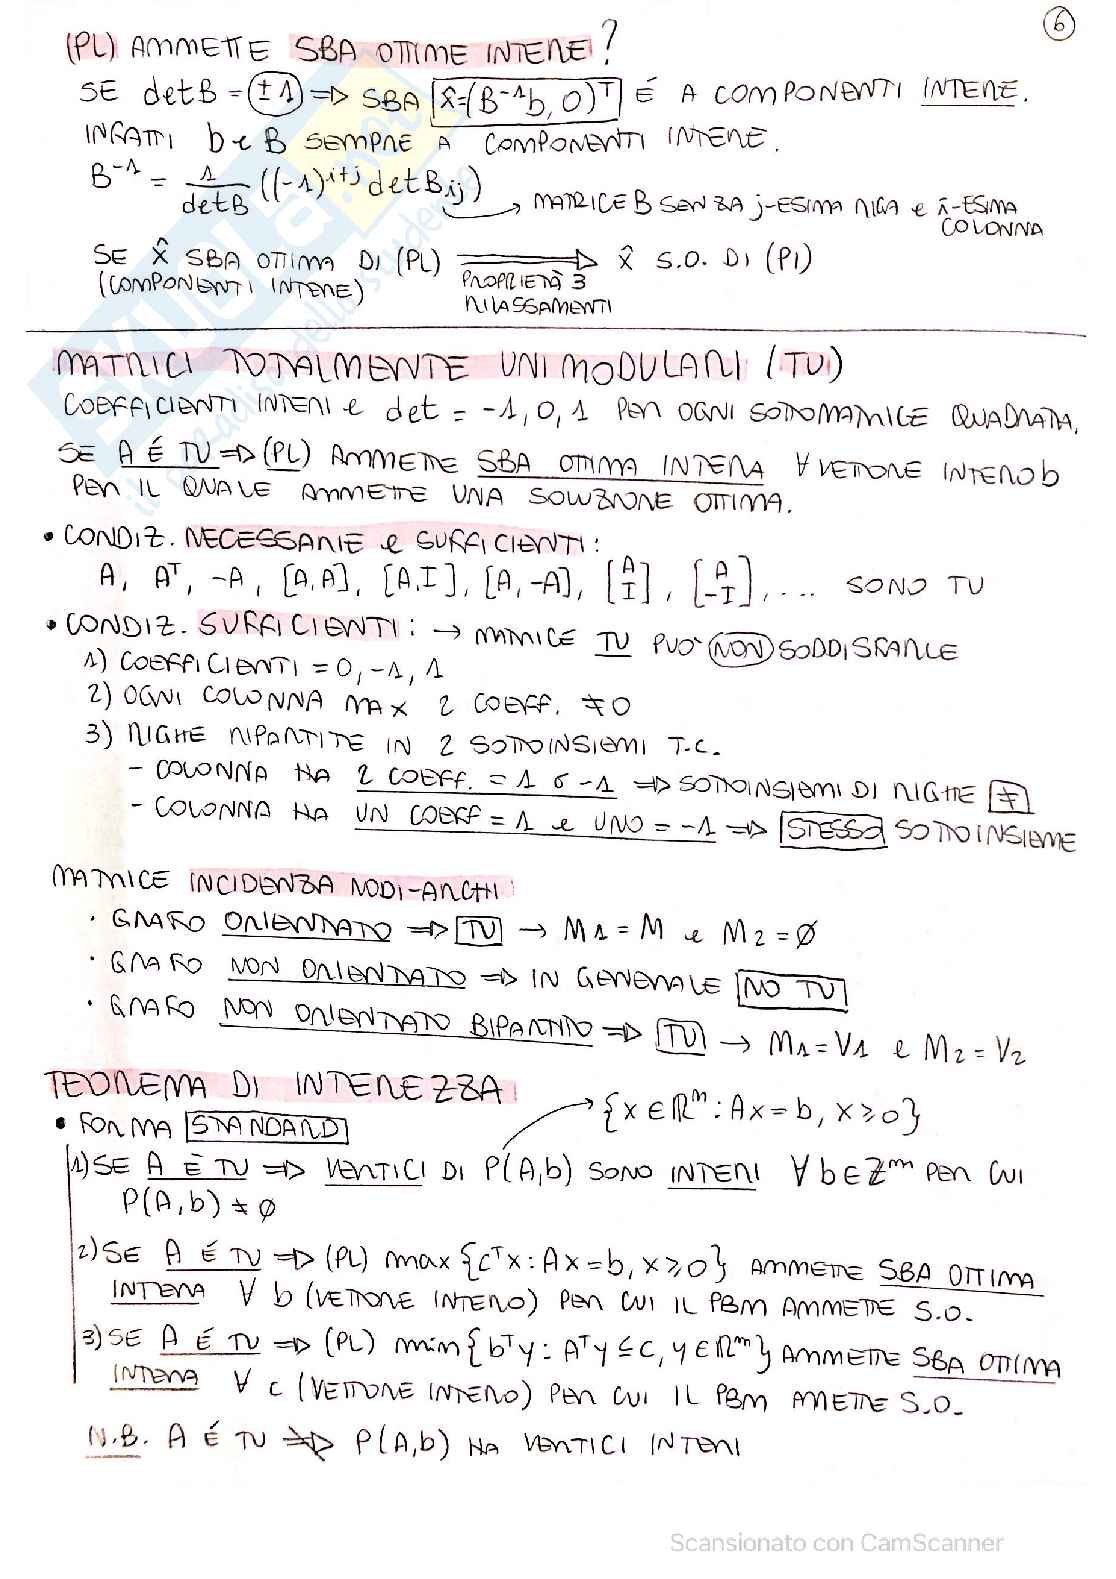 6
(PL) AMMETTE SBA OTTIME INTERE?
SE detB = ±1 => SBA x̂=(B⁻¹b, 0)ᵀ É A COMPONENTI INTERE.
INFATTI b e B SEMPRE A COMPONENTI INTERE.
B⁻¹ = 1/detB ((-1)^{i+j} detB_{ij})
→ MATRICE B SENZA j-ESIMA RIGA e i-ESIMA COLONNA
SE x̂ SBA OTTIMA DI (PL) ⟹ x̂ S.O. DI (PI)
(COMPONENTI INTERE) PROPRIETÀ 3
RILASSAMENTI
MATRICI TOTALMENTE UNIMODULARI (TU)
COEFFICIENTI INTERI e det = -1, 0, 1 PER OGNI SOTTOMATRICE QUADRATA.
SE A É TU => (PL) AMMETTE SBA OTTIMA INTERA ∀ VETTORE INTERO b
PER IL QUALE AMMETTE UNA SOLUZIONE OTTIMA.
• CONDIZ. NECESSARIE e SUFFICIENTI:
A, Aᵀ, -A, [A,A], [A,I], [A,-A], [A I], [A -I], ... SONO TU
• CONDIZ. SUFFICIENTI: → MATRICE TU PUO' NON SODDISFARLE
1) COEFFICIENTI = 0, -1, 1
2) OGNI COLONNA MAX 2 COEFF. ≠0
3) RIGHE RIPARTITE IN 2 SOTTOINSIEMI T.C.
- COLONNA HA 2 COEFF. = 1 o -1 => SOTTOINSIEMI DI RIGHE ≠
- COLONNA HA UN COEFF = 1 e UNO = -1 => STESSO SOTTOINSIEME
MATRICE INCIDENZA NODI-ARCHI:
• GRAFO ORIENTATO => TU → M1 = M e M2 = ∅
• GRAFO NON ORIENTATO => IN GENERALE NO TU
• GRAFO NON ORIENTATO BIPARTITO => TU → M1 = V1 e M2 = V2
TEOREMA DI INTEREZZA
→ {x∈ℝⁿ: Ax = b, x ≥ 0}
• FORMA STANDARD
1) SE A È TU => VERTICI DI P(A,b) SONO INTERI ∀ b∈ℤᵐ PER CUI
P(A,b) ≠ ∅
2) SE A É TU => (PL) max {cᵀx: Ax = b, x ≥ 0} AMMETTE SBA OTTIMA
INTERA ∀ b (VETTORE INTERO) PER CUI IL PBM AMMETTE S.O.
3) SE A É TU => (PL) min {bᵀy: Aᵀy ≤ c, y∈ℝᵐ} AMMETTE SBA OTTIMA
INTERA ∀ c (VETTORE INTERO) PER CUI IL PBM AMETTE S.O.
N.B. A É TU ⇏ P(A,b) HA VERTICI INTERI
Scansionato con CamScanner